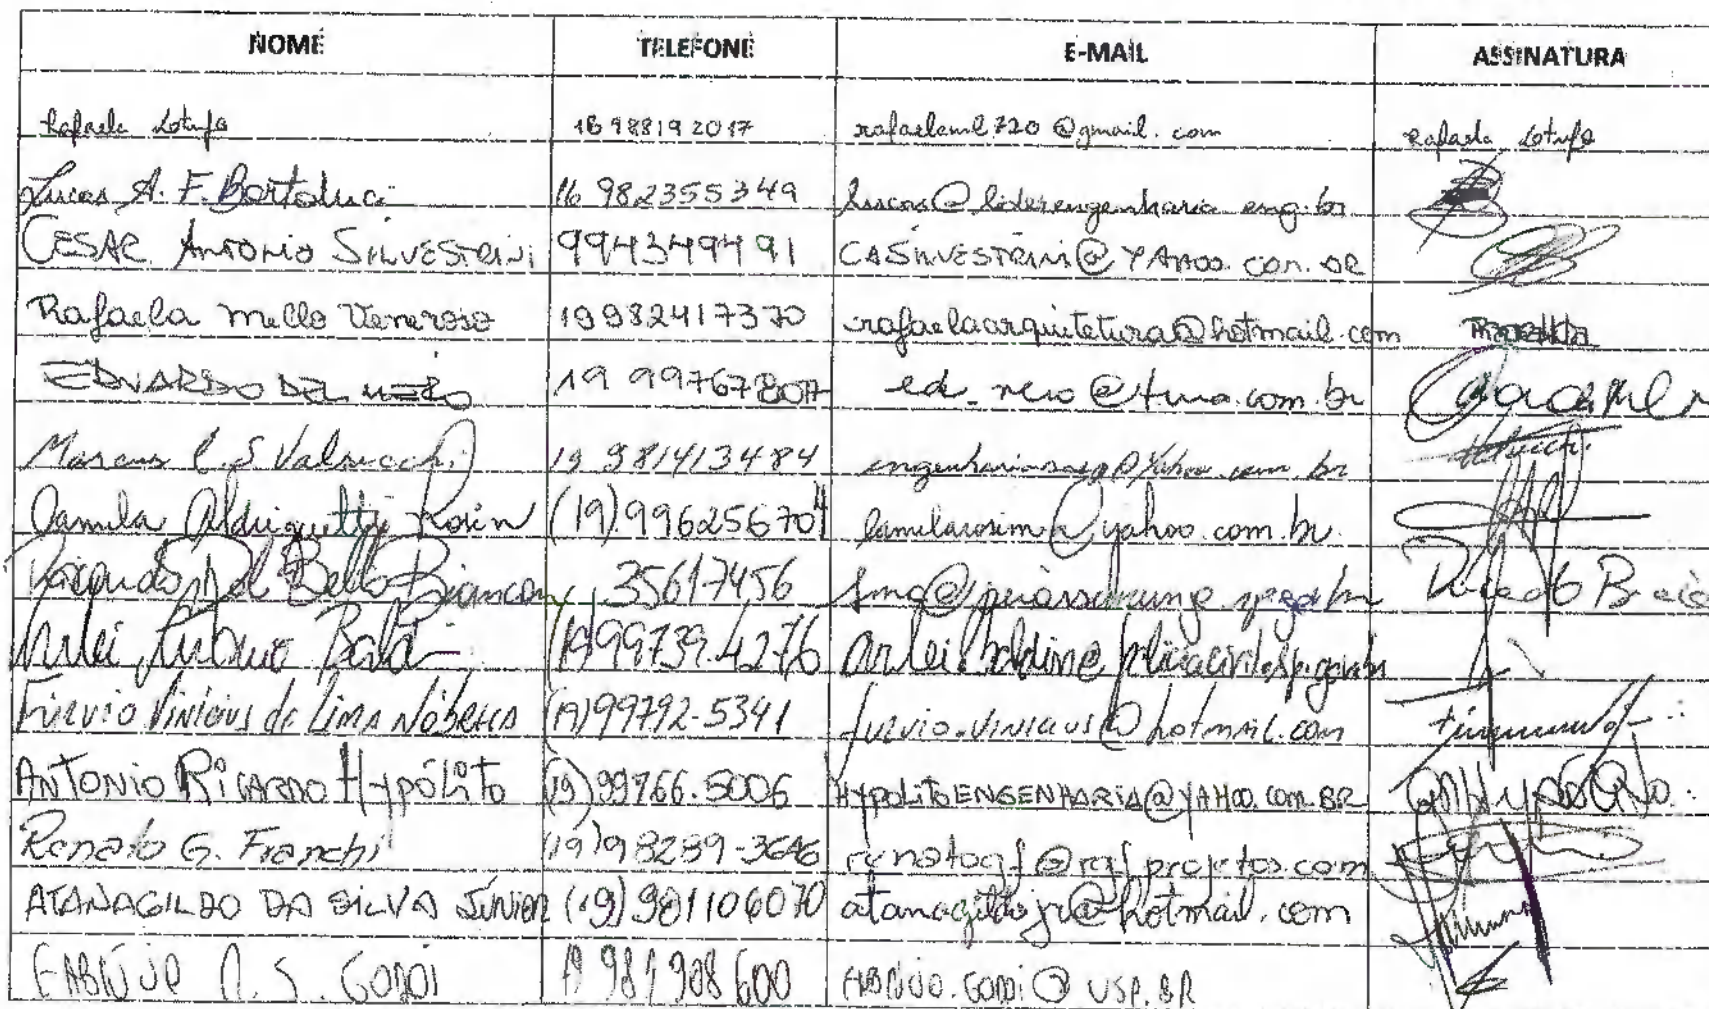 NOME TELEFONE E-MAIL ASSINATURA
Rafaela Lotufo 16 98819 2017 rafaelaml720@gmail.com Rafaela Lotufo
Lucas A. F. Bortoluci 16 982355349 lucas@liderengenharia.eng.br
CESAR ANTONIO SILVESTRINI 994349491 CASILVESTRINI@YAHOO.COM.BR
Rafaela Mello Veneroso 19982417370 rafaelaarquitetura@hotmail.com
EDUARDO DEL NERO 19 997678017
Marcus C. S. Valnecchi 19 981413484
Camila Aldriguetti Rosin (19) 996256704 camilarosim@yahoo.com.br
Del Bello 35617456
Arlei Antonio Baldin (19) 99739.4276
FULVIO VINICIUS de LIMA NÓBREGA (19) 99792-5341 fulvio.vinicius@hotmail.com
ANTONIO RICARDO HYPÓLITO (19) 99766.5006 HYPOLITOENGENHARIA@YAHOO.COM.BR
Renato G. Franchi (19) 98289-3646 renatogf@rgfprojetos.com
ATANAGILDO DA SILVA JÚNIOR (19) 981106070 atanagildojr@hotmail.com
FABRÍCIO R. S. GODOI 19 981908600 FABRICIO.GODOI@USP.BR